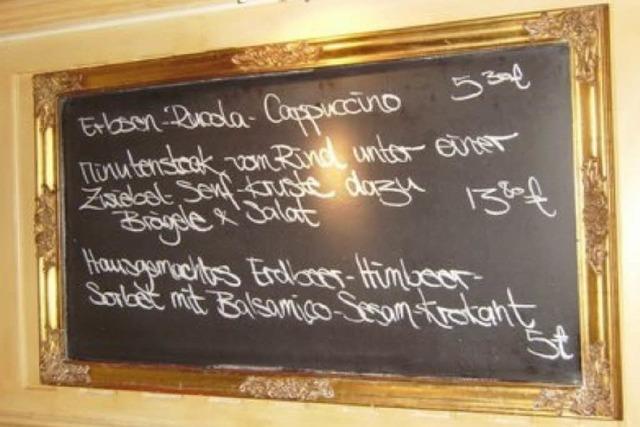 Erbsen-Rucola-Cappuccino 5 30€
Minutensteak vom Rind unter einer
Zwiebel Senf-Kruste dazu 13 80€
Brägele & Salat
Hausgemachtes Erdbeer-Himbeer-
Sorbet mit Balsamico-Sesam-Krokant
5€